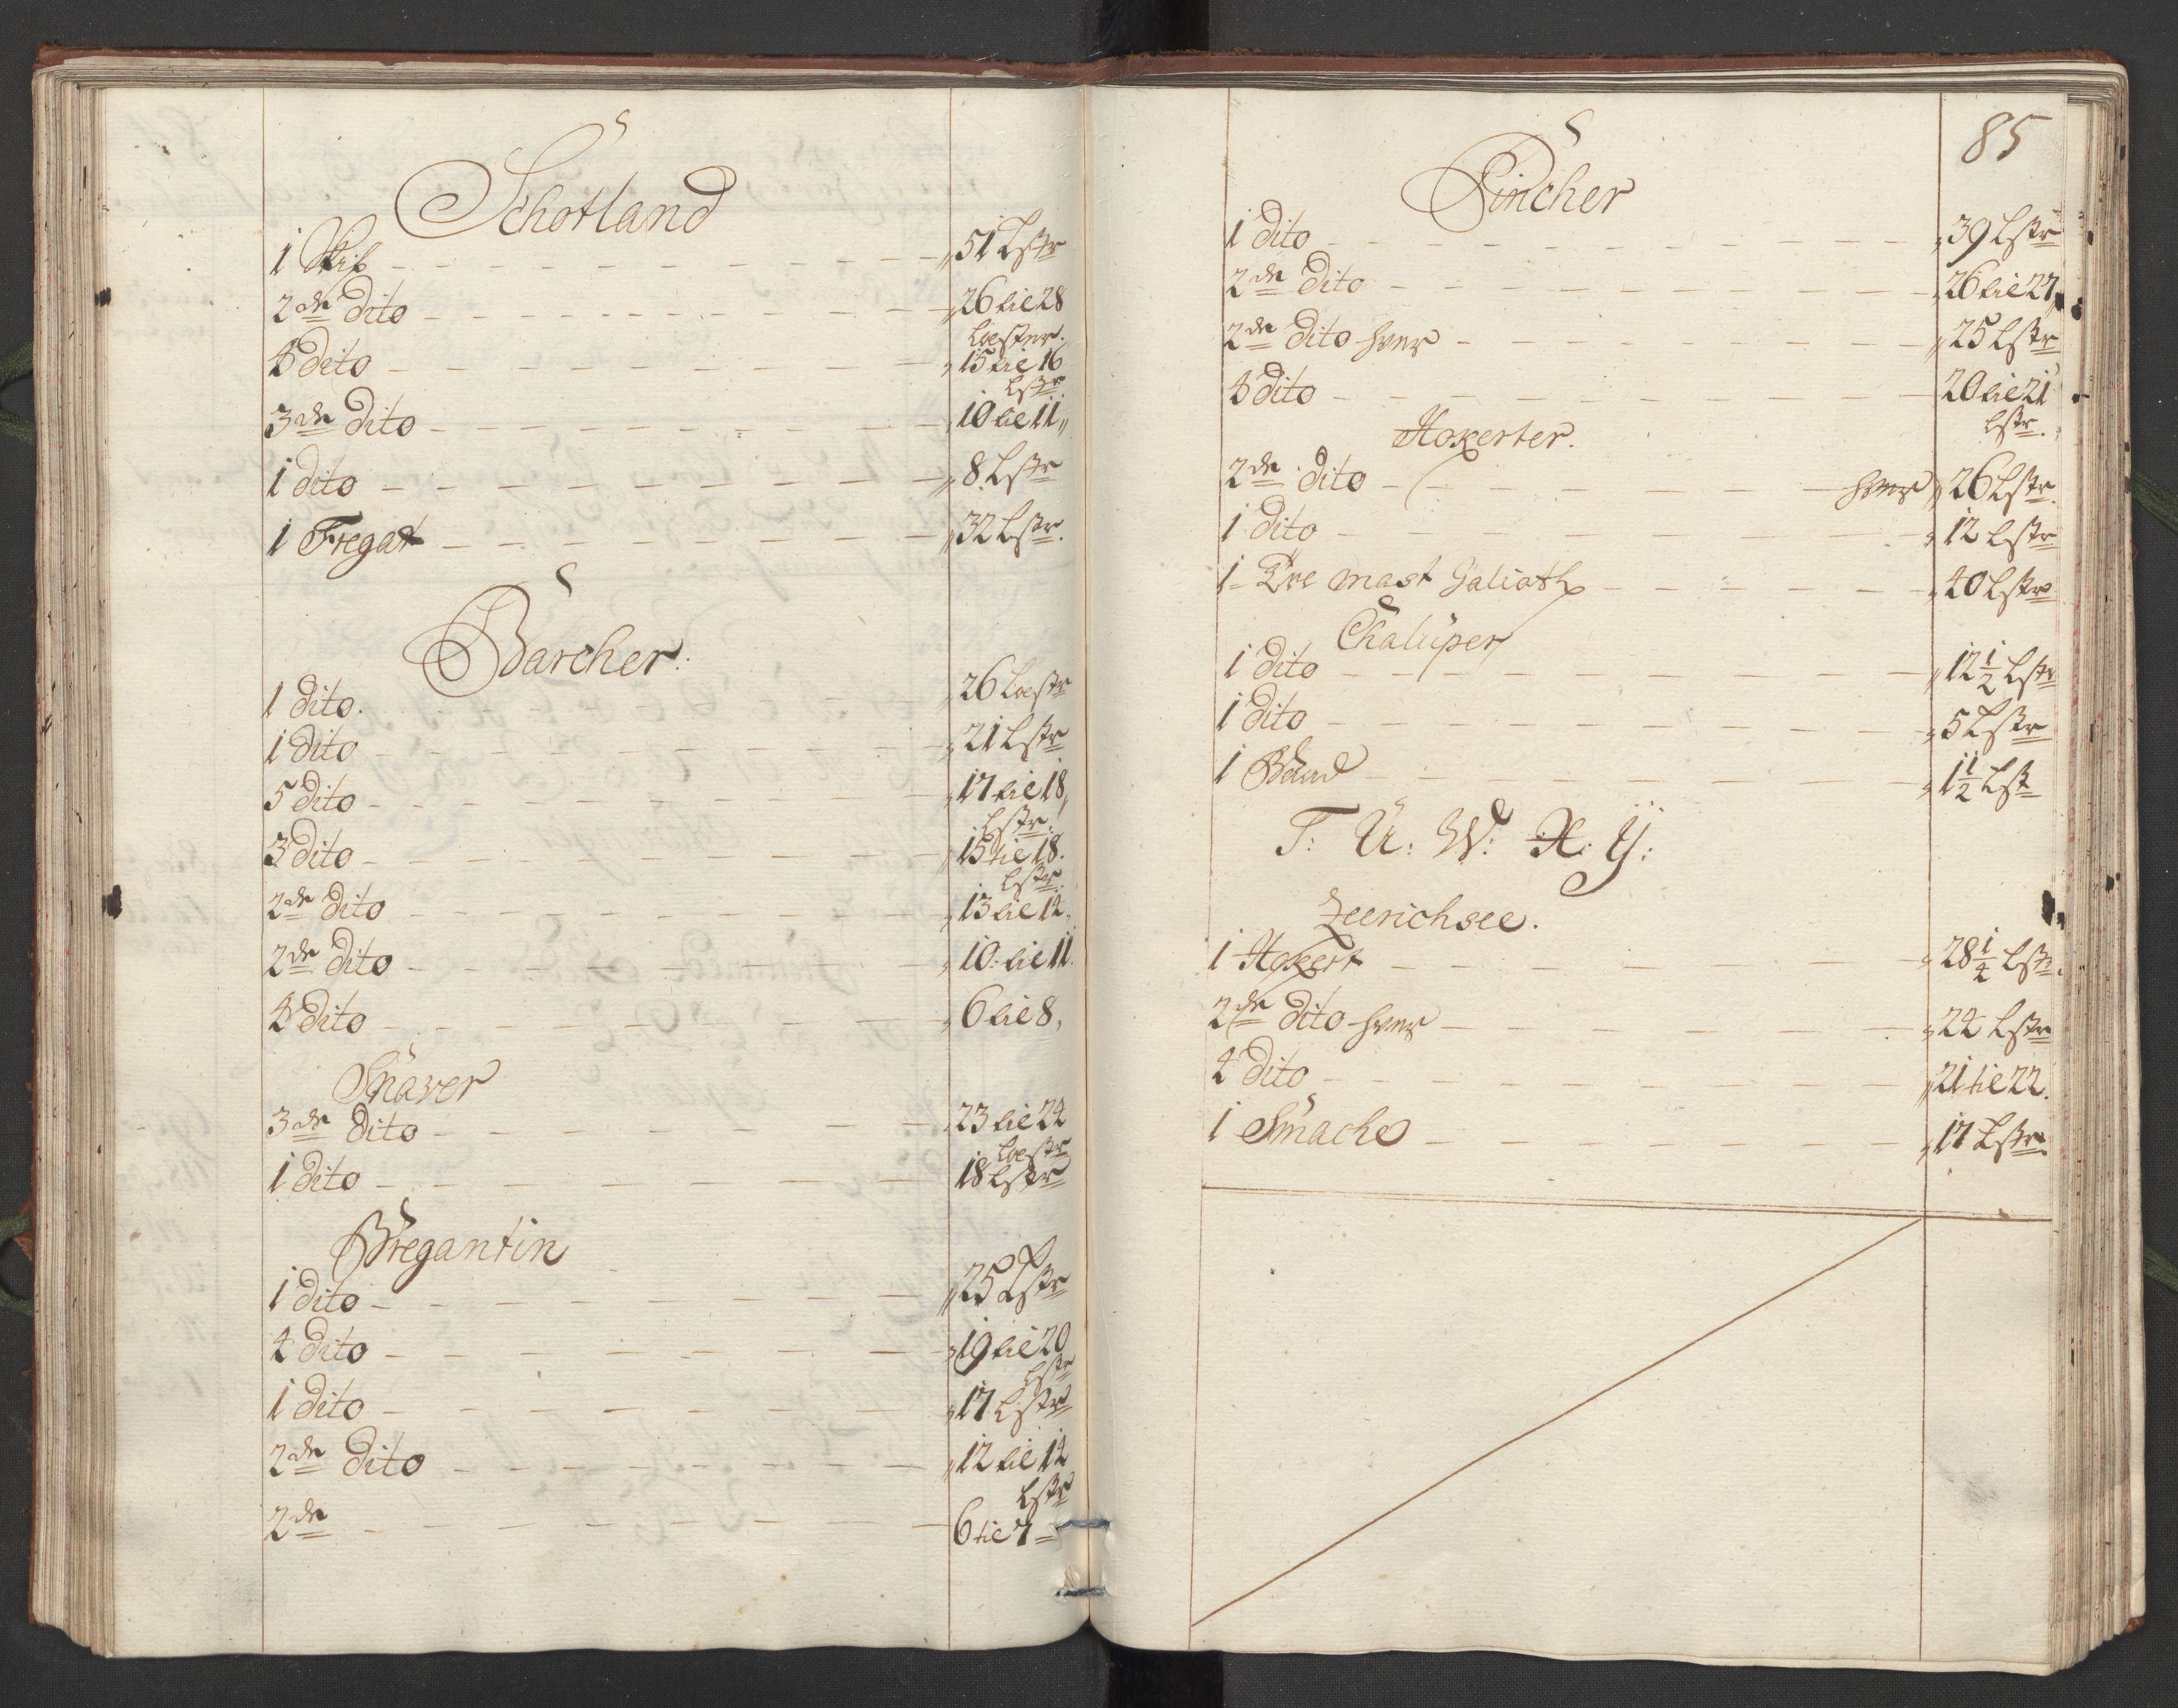 Schotland
1 Skib — „ 51 Lstr
2de dito — „ 26 til 28
Læster.
4 dito — „ 15 til 16
Lstr
3de dito — „ 10 til 11 „
1 dito — „ 8 Lstr
1 Fregat — „ 32 Lstr.
Barcher.
1 dito. — „ 26 Læstr
1 dito — „ 21 Lstr
5 dito — „ 17 til 18,
Lstr.
3 dito — „ 15 til 18.
Lstr.
2de dito — „ 13 til 14.
2de dito — „ 10. til 11.
4 dito — „ 6 til 8,
Snaver
3de dito — „ 23 til 24
Læstr
1 dito — 18 Lstr
Bregantin
1 dito — „ 25 Lstr
4 dito — „ 19 til 20
Lstr
1 dito — „ 17 Lstr
2de dito — „ 12 til 14
Lstr
2de — 6 til 7
85
Pincher
1 dito — „ 39 Lstr
2de dito — „ 26 til 27,
2de dito hver — „ 25 Lstr
4 dito — 20 til 21
Lstr.
Hokerter.
2de dito — hver „ 26 Lstr.
1 dito — „ 12 Lstr
1 Tre mast Galioth — „ 40 Lstr
Chaluper
1 dito — „ 12 1/2 Lstr
1 dito — „ 5 Lstr
1 Baad — „ 1 1/2 Lst
T: U: W: X: Y:
Zeerichsee.
1 Hokert — „ 28 1/4 Lstr.
2de dito hver — „ 24 Lstr
4 dito — „ 21 til 22.
1 Smache — „ 17 Lstr